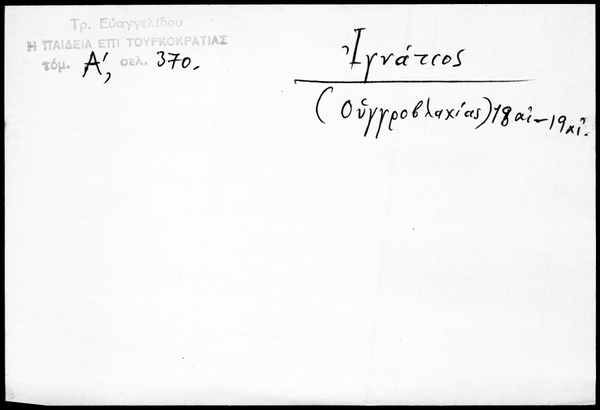 Τρ. Εὐαγγελίδου
Η ΠΑΙΔΕΙΑ ΕΠΙ ΤΟΥΡΚΟΚΡΑΤΙΑΣ
τόμ. Α', σελ. 370.
Ἰγνάτιος
(Οὑγγροβλαχίας) 18 αἰ-19 αἰ.